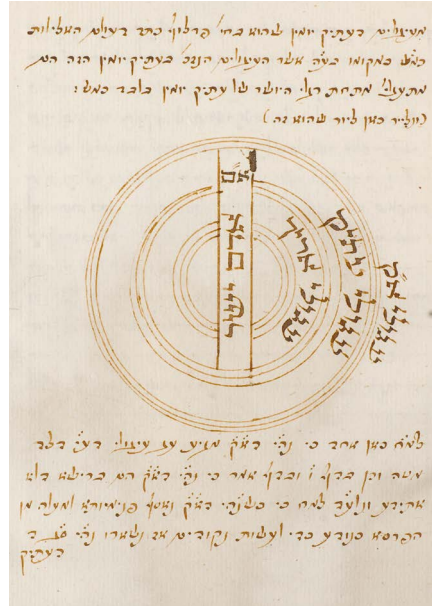 מעיגולים דעתיק יומין שהוא בחי' פרצוף כתר דעולם האצילות
כמ"ש במקומו בע"ה אשר העיגולים הנז' בעתיק יומין הזה הם
מתעגלי' מתחת רגלי היושר של עתיק יומין בלבד כמש':
(ונצייר כאן ציור שהוא זה)
אדם
א"ק
ישר
עיגולי אריך
עיגולי עתיק
עיגולי א"ק
למ"ח כאן אחד כי נה"י דא"ק מגיע עד עיגולי דע"י דצד
מטה וכן בדף ז' ובדף אמר כי נה"י דא"ק הם ברישא דלא
אתידע וצ"ע למ"ח כי כשנה"י דא"ק נאסף פנימיותו למעלה מן
הפרסא כנודע כדי לעשות נקודים אז נשארו נה"י
דעתיק